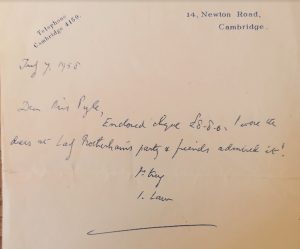 Telephone
Cambridge 4150.
14, Newton Road,
Cambridge.
July 7. 1955
Dear Miss Pyle,
Enclosed cheque £8-8-0. I wore the
dress at Lady Rotherham's party & friends admired it!